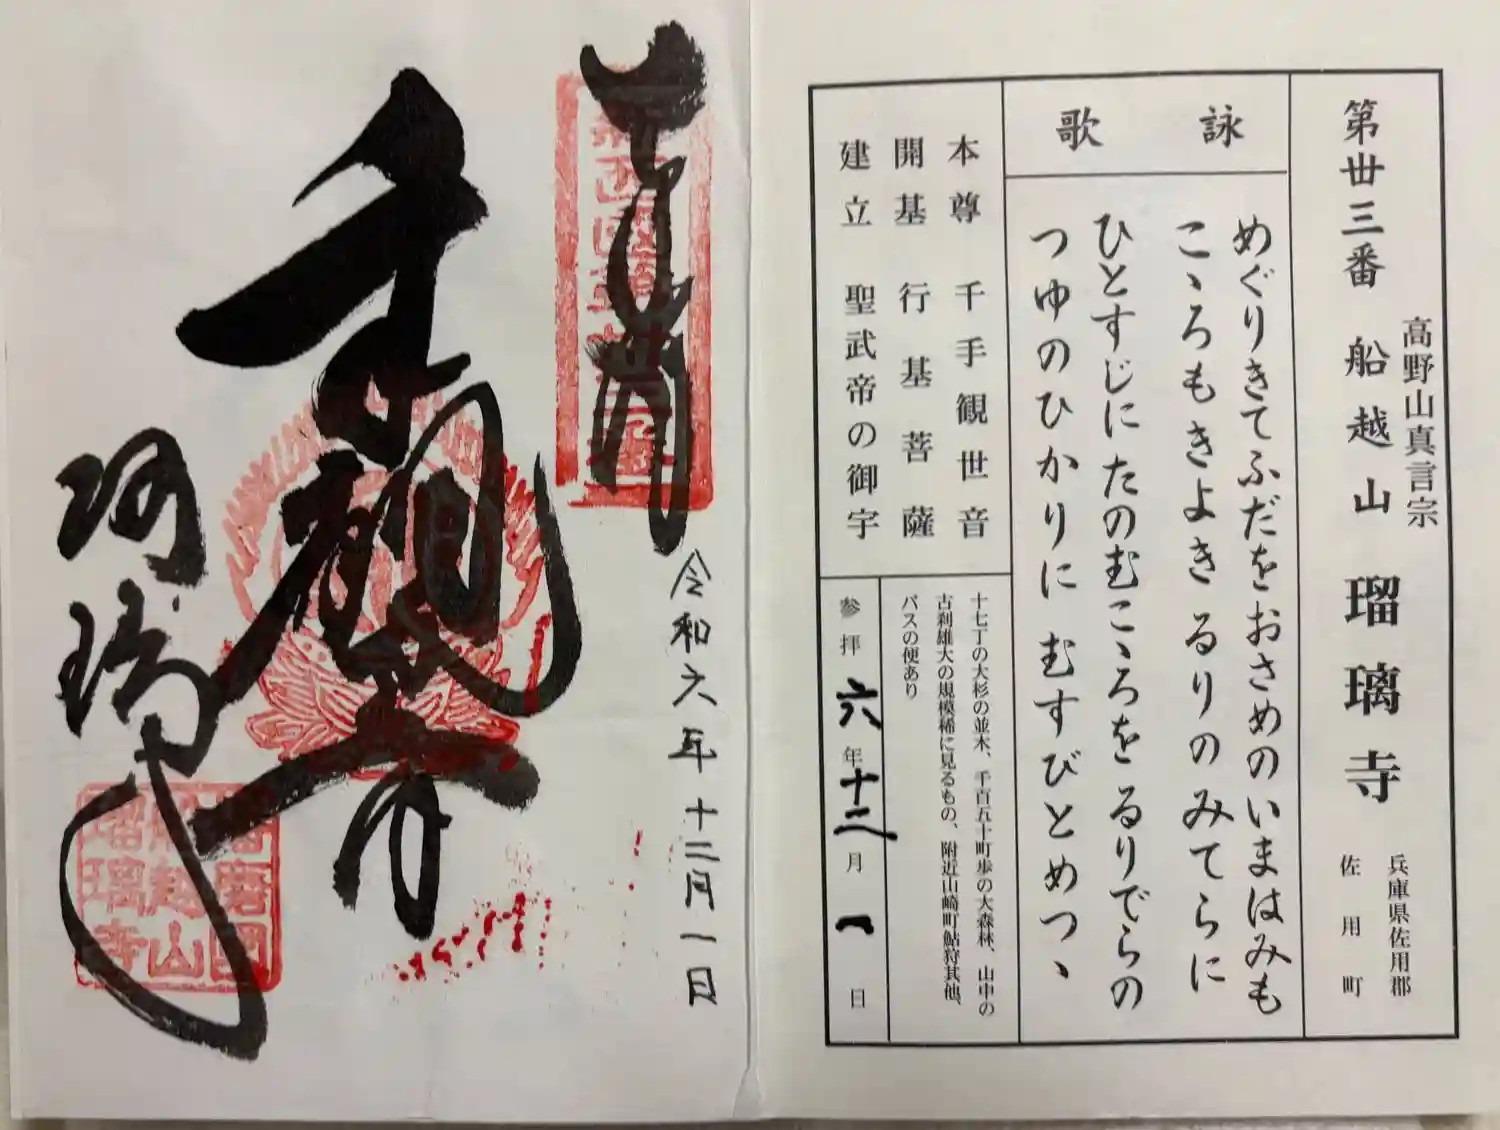 第丗三番 船越山 瑠璃寺
高野山真言宗
兵庫県佐用郡
佐用町
詠歌
めぐりきてふだをおさめのいまはみも
こゝろもきよきるりのみてらに
ひとすじにたのむこゝろをるりでらの
つゆのひかりにむすびとめつゝ
本尊 千手観世音
開基 行基菩薩
建立 聖武帝の御宇
十七丁の大杉の並木、千百五十町歩の大森林、山中の
古刹雄大の規模稀に見るもの、附近山崎町鮎狩其他、
バスの便あり
参拝 六年十二月一日
令和六年十二月一日
千手観音
播磨國
船越山
瑠璃寺